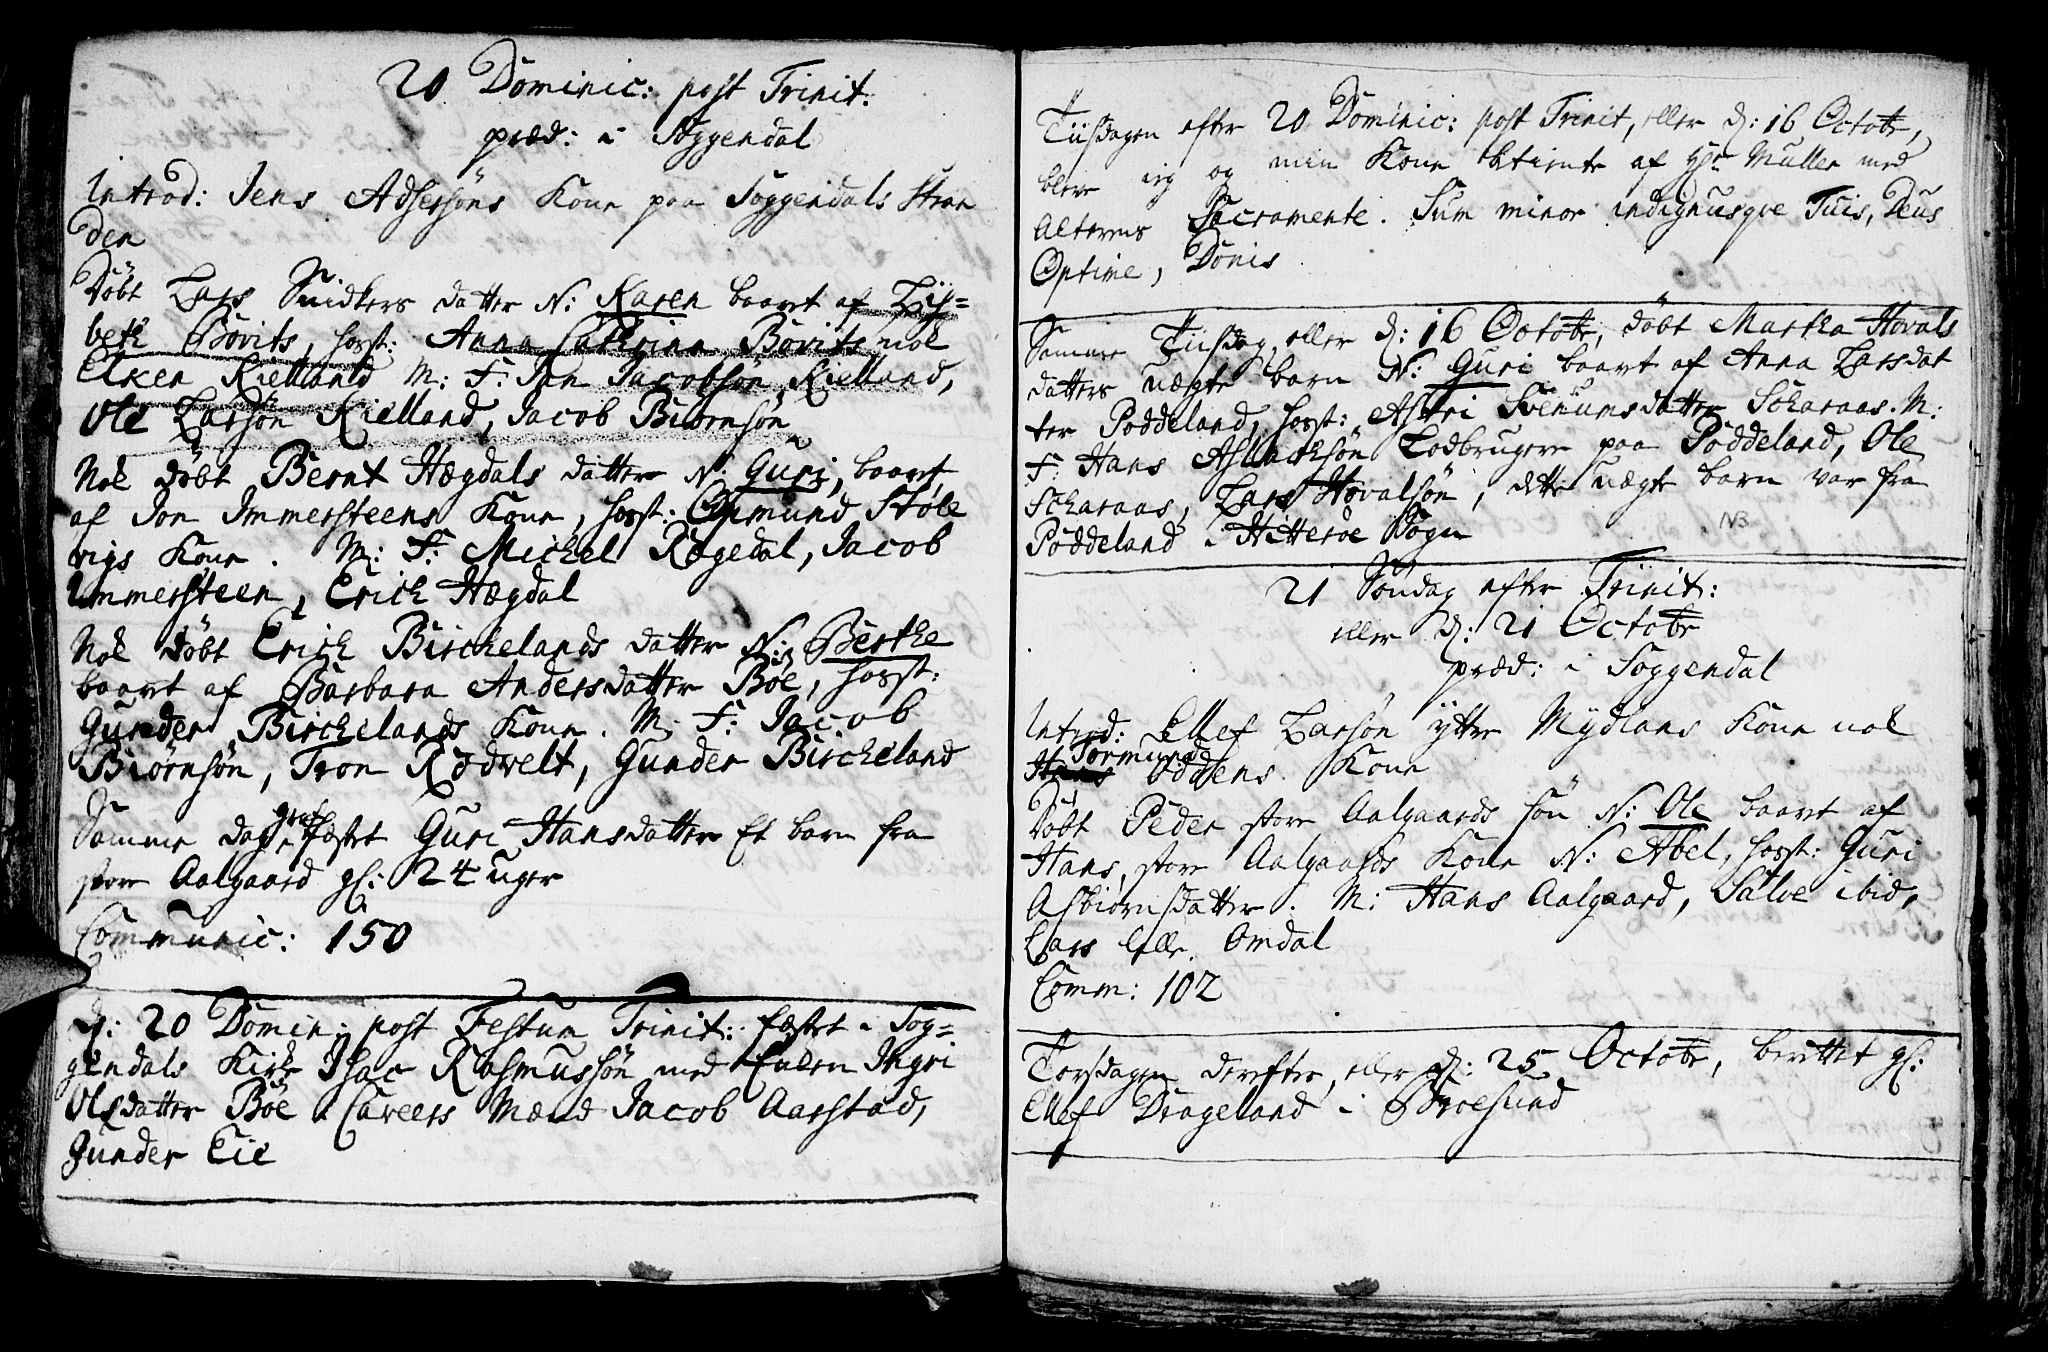 20 Dominic: post Trinit:
præd: i Soggendal
Introd: Jens Adsersøns Kone paa Soggendals Stran
den
Døbt Lars Snidkers datter N: Karen baaret af Lis=
beth Bovits, host: Anna Cathrina Bovits nok
Elken Kielland M: F: Jan Jacobsøn Kielland,
Ole Larsøn Kielland, Jacob Biørnsøn
Nok døbt Bernt Hægdals datter N: Guri, baaret
af Jon Immersteens Kone, host: Osmund Støle
vigs Kone. M: F: Michel Rægedal, Jacob
Immersteen, Erich Hægdal
Nok døbt Erich Birchelands datter N: Berthe
baaret af Barbara Andersdatter Böe, host:
Gunder Birchelands Kone. M: F: Jacob
Biørnsøn, Tron Rødvelt, Gunder Bircheland
Samme dag Guri Hansdatter Et barn fra
store Aalgaard gl: 24 uger
Communic: 150
d: 20 Domin: post Festum Trinit: fæstet i Sog=
gendals Kirke Isac Rasmussøn med Enken Ingri
Olsdatter Böe. Caveers Mænd Jacob Aarstad,
Gunder Eie
Tiisdagen after 20 Dominic: post Trinit, eller d: 16 Octobr,
bleve ieg og min Kone betiente af Hr Muller med
Alterens Sacramente. Sum minor indignusqve Tuis, Deus
Optime, Donis
Samme Tiisdag, eller d: 16 Octobr, døbt Martha Hovals
datters uægte barn N: Guri baaret af Anna Larsdat
ter Poddeland, host: Astri Svenumsdatter Scharaas. M:
F: Hans Aslachsøn Lodbruger paa Poddeland, Ole
Scharaas, Lars Hovalsøn, dette uægte barn var fra
Poddeland i Hetteröe Sogn
NB
21 Søndag after Trinit:
eller d: 21 Octobr
præd: i Soggendal
Introd: Ellef Larsøn ytter Mydlans Kone nok
Tormund
Hans Oddens Kone
Døbt Peder store Aalgaards søn N: Ole baaret af
Hans store Aalgaards Kone N: Abel, host: Guri
Asbiørnsdatter. M: Hans Aalgaard, Salve ibid,
Lars lille Omdal
Comm: 102
Torsdagen derefter, eller d: 25 Octobr, berettet gl:
Ellef Drageland i